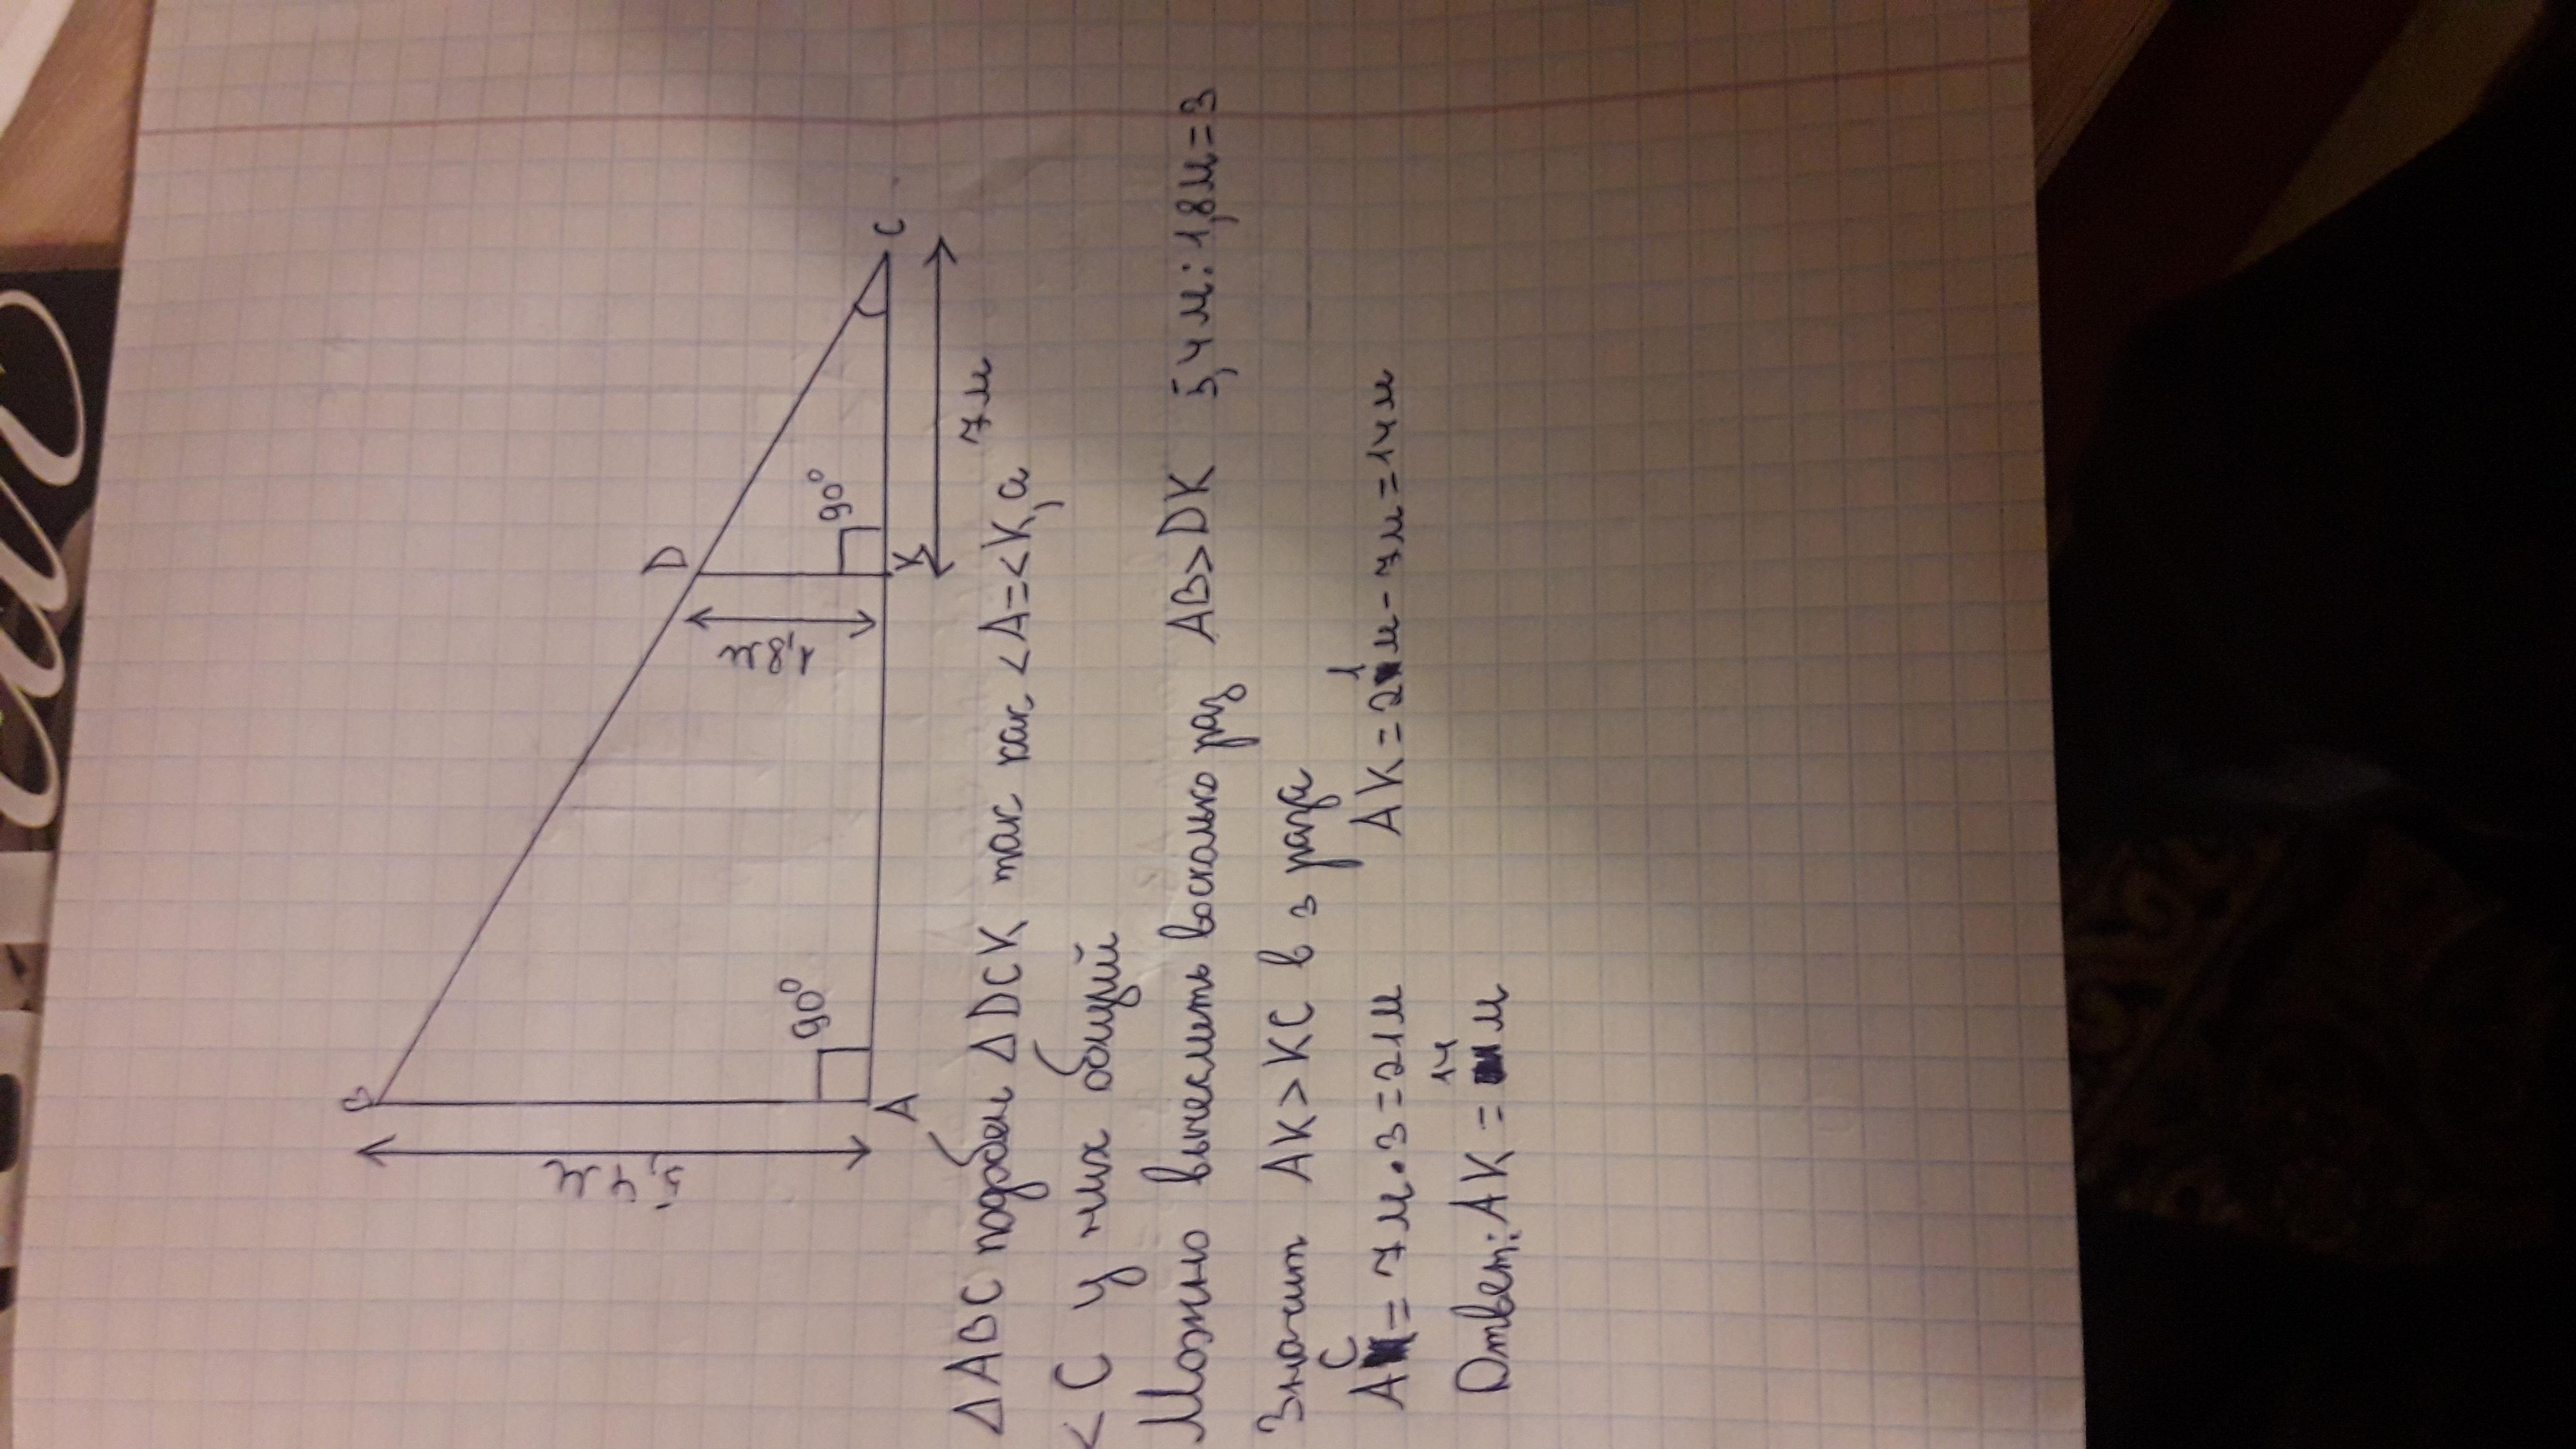 B
5,4 м
90°
A
D
1,8 м
90°
K
C
7 м
ΔABC подобен ΔDCK так как <A=<K, а
<C у них общий
Можно вычеслить восколько раз AB>DK 5,4 м:1,8м=3
Значит AK>KC в 3 раза
AC = 7 м•3=21м AK=21м-7м=14м
Ответ: AK=14 м